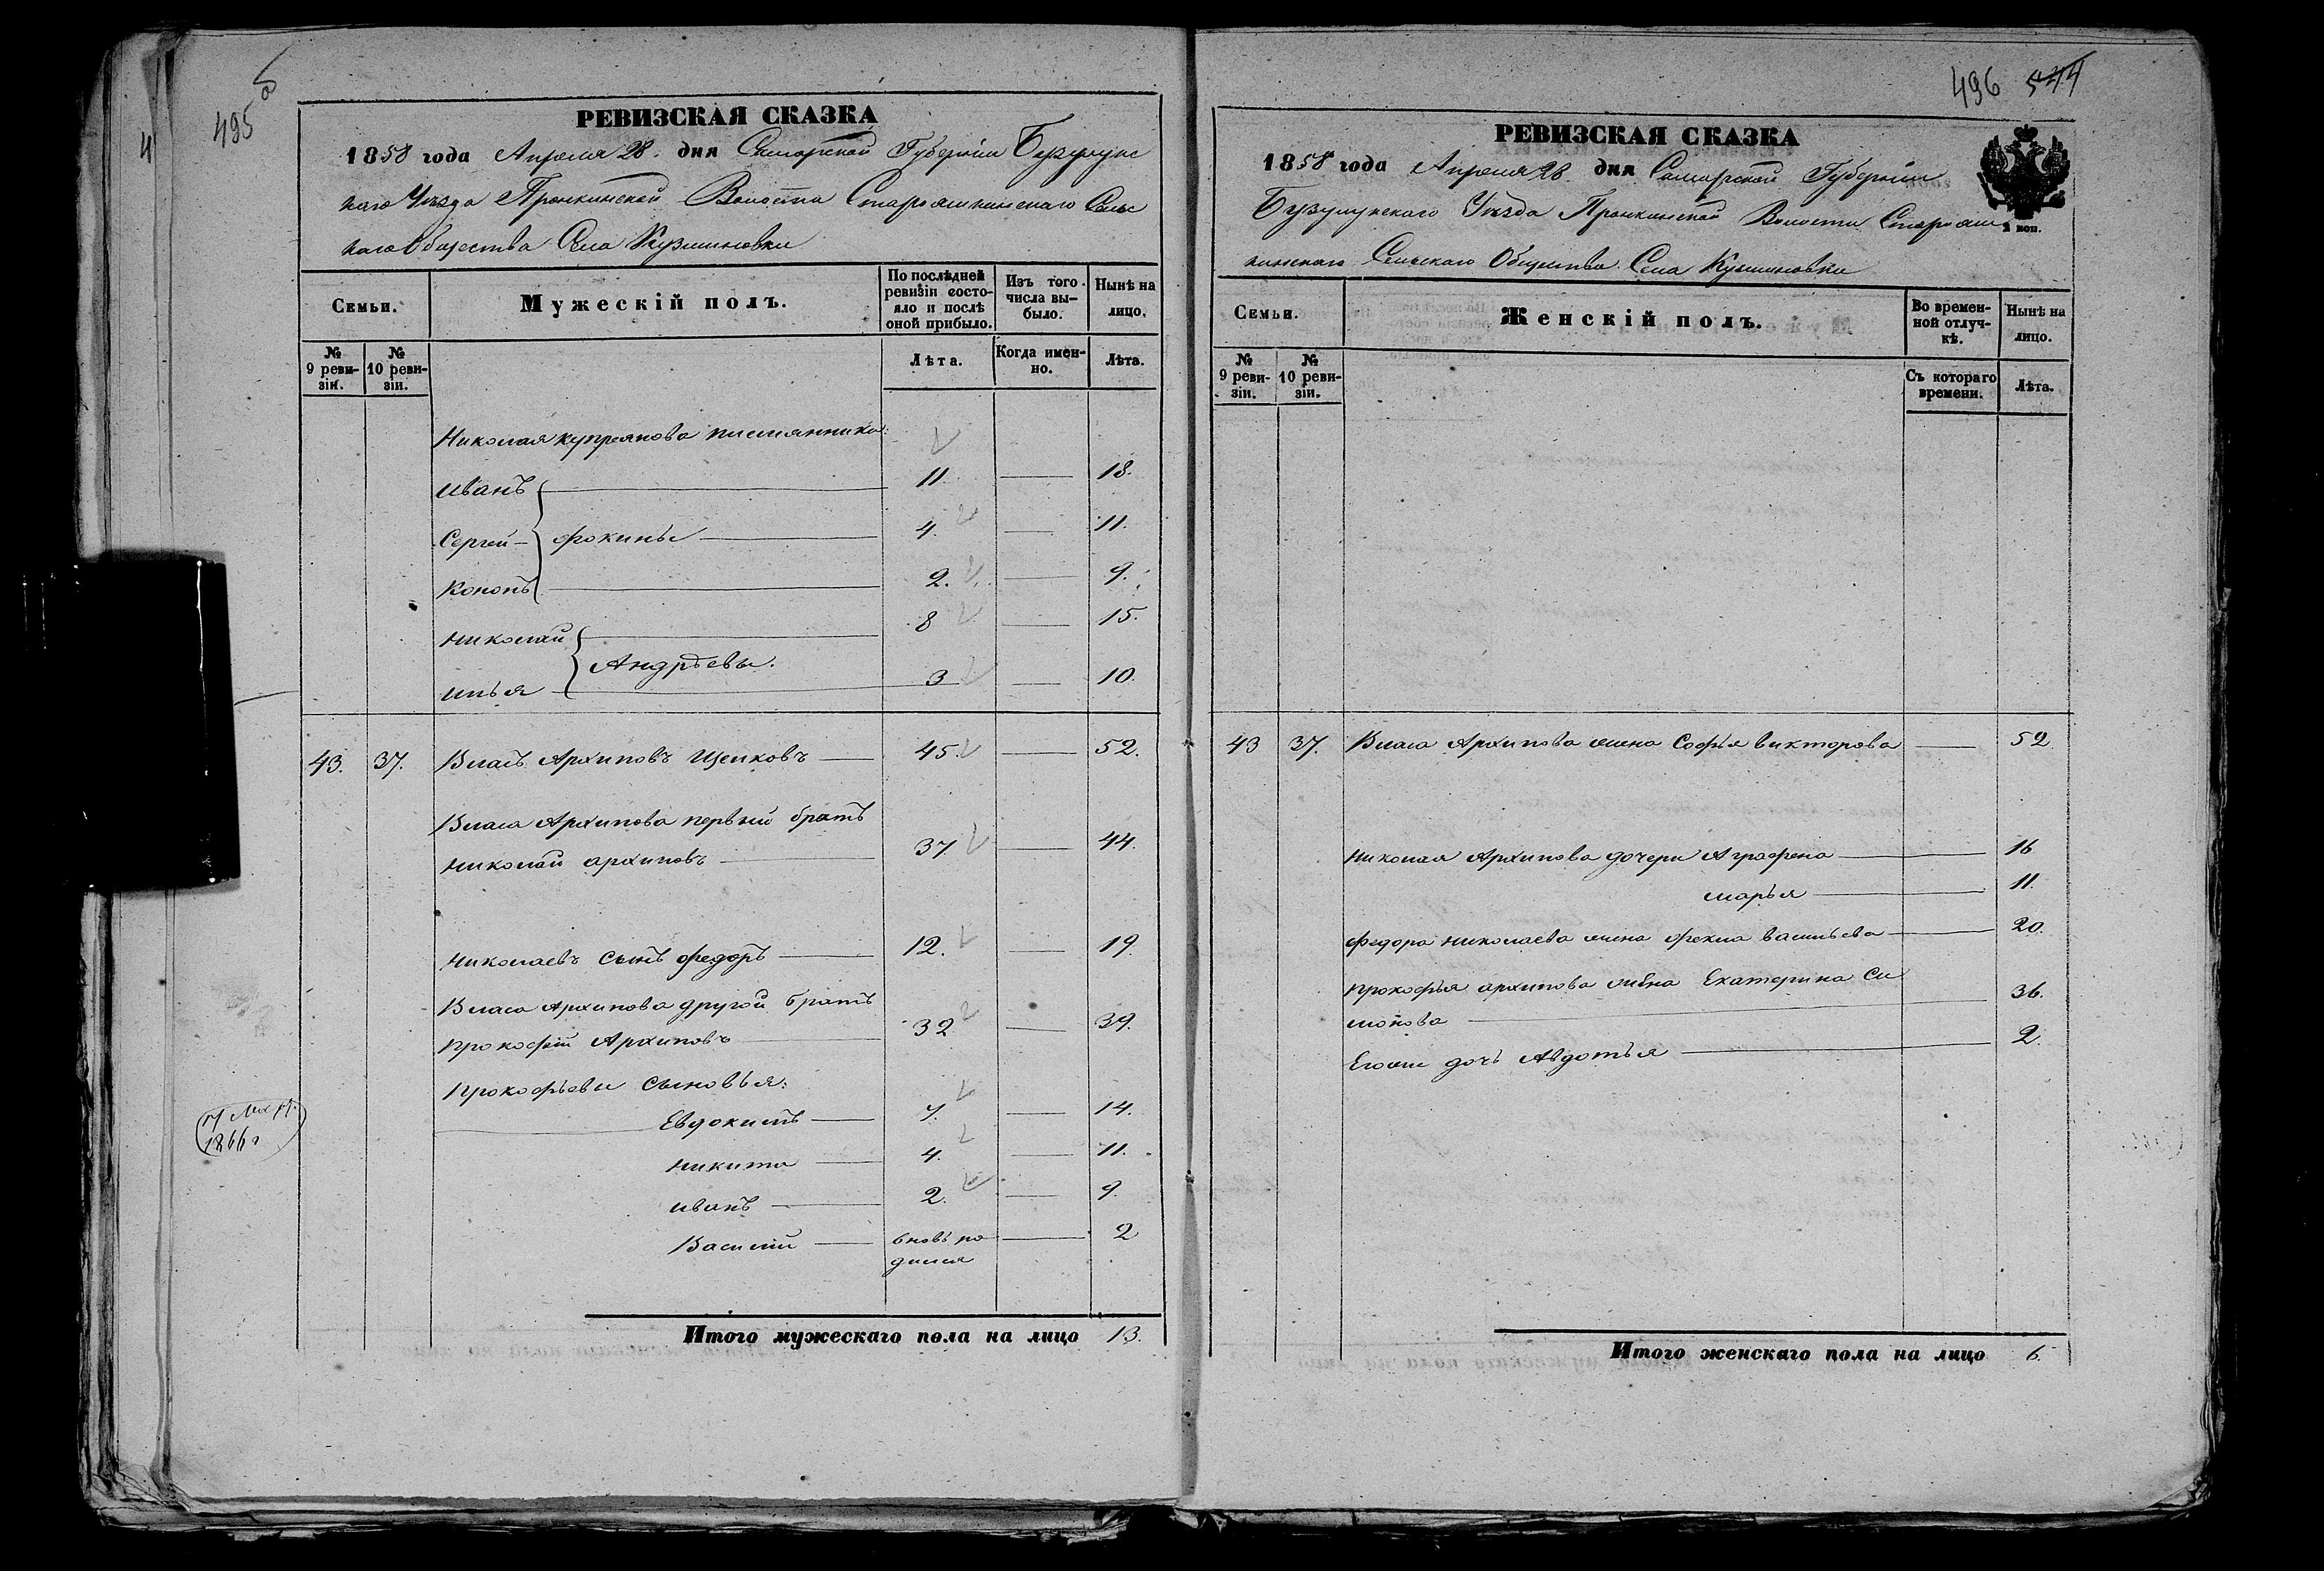 495
об
4
РЕВИЗСКАЯ СКАЗКА
1858 года Апреля 28. дня Самарской Губерніи Бузулукс
каго Уѣзда Пронкинской Волости Старояшкинскаго Сельс
каго Общества Села Кузминовки
Семьи.
Мужескій полъ.
По послѣдней ревизіи состояло и послѣ оной прибыло.
Изъ того числа выбыло.
Нынѣ на лицо.
№ 9 ревизіи.
№ 10 ревизіи.
Лѣта.
Когда именно.
Лѣта.
Николая Купреянова племянники:
Иванъ 11. — 18.
Сергей Фокины 4. — 11.
Кононъ 2. — 9.
Николай 8 — 15.
Андрѣевы.
Илья 3 — 10.
43. 37. Власъ Архиповъ Щепковъ 45. — 52.
Власа Архипова первый братъ
Николай Архиповъ 37. — 44.
Николаевъ сынъ Федоръ 12. — 19.
Власа Архипова другой братъ
Прокофѣй Архиповъ 32 — 39.
Прокофьевы сыновья:
Евдокимъ 7. — 14.
Никита 4. — 11.
Иванъ 2. — 9.
Василій вновь ро — 2
дился
1866 г
Итого мужескаго пола на лицо 13.
496 544
РЕВИЗСКАЯ СКАЗКА
1858 года Апреля 28. дня Самарской Губерніи
Бузулукскаго Уѣзда Пронкинской Волости Старояш
кинскаго Сельскаго Общества Села Кузминовки
коп.
Семьи.
Женскій полъ.
Во временной отлучкѣ.
Нынѣ на лицо.
№ 9 ревизіи.
№ 10 ревизіи.
Съ котораго времени.
Лѣта.
43 37. Власа Архипова жена Софья Викторова — 52
Николая Архипова дочери Аграфена — 16
Марья — 11.
Федора Николаева жена Фекла Васильева — 20.
Прокофья Архипова жена Екатерина Си
монова — 36.
Его же дочь Авдотья — 2.
Итого женскаго пола на лицо 6.